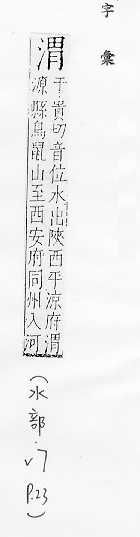 字彙
渭
于貴切音位水出陝西平涼府渭
源縣鳥鼠山至西安府同州入河
(水部.v7 P.23)